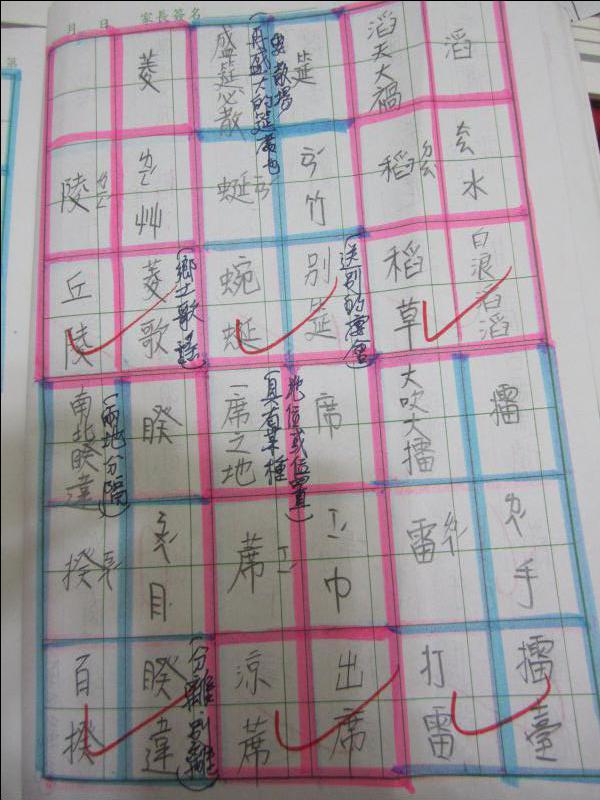 月 日 家長簽名
滔
ㄊㄠ 水
白浪滔滔
滔天大禍
稻 ㄉㄠˋ
稻草
筵
ㄧㄢˊ 竹
別筵
(送別的宴會)
盛筵必散
(再盛大的筵席也要散場)
蜒 ㄧㄢˊ
蜿蜒
菱
ㄌㄧㄥˊ 艸
菱歌
(鄉土歌謠)
陵 ㄌㄧㄥˊ
丘陵
擂
ㄌㄟˊ 手
擂臺
大吹大擂
雷 ㄌㄟˊ
打雷
席
ㄒㄧˊ 巾
出席
一席之地
(具有某種地位或位置)
蓆 ㄒㄧˊ
涼蓆
睽
ㄎㄨㄟˊ 目
睽違
(分離.別離)
南北睽違
(兩地分隔)
揆 ㄎㄨㄟˊ
百揆